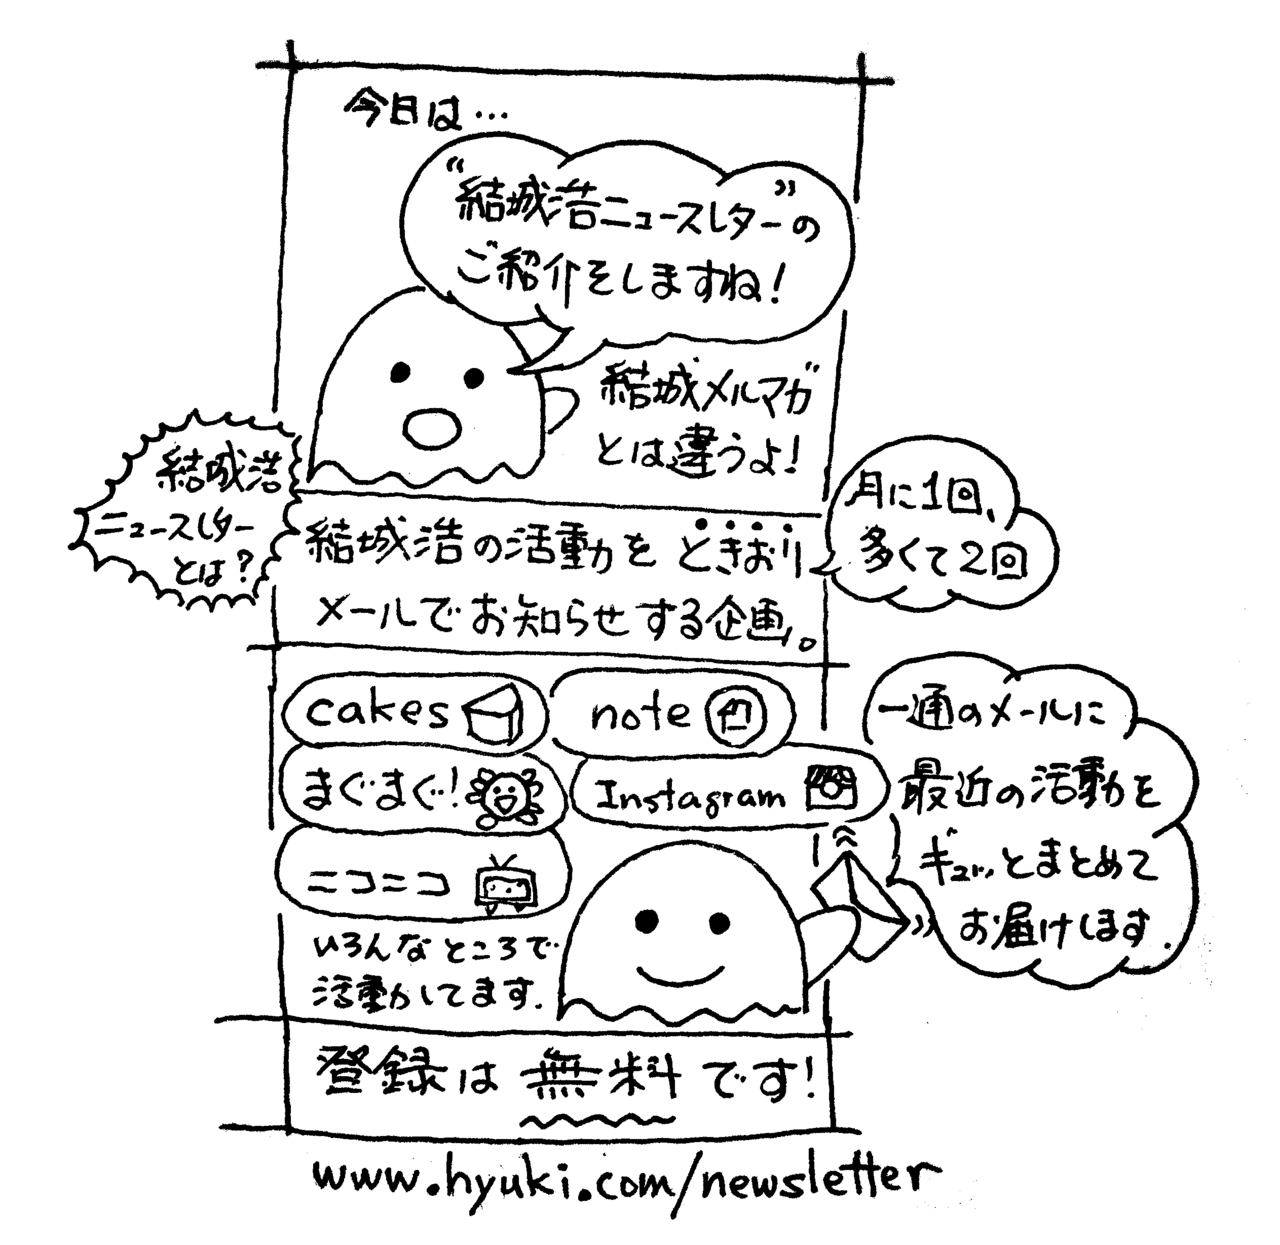 今日は…
“結城浩ニュースレター”の
ご紹介をしますね！
結城メルマガ
とは違うよ！
結城浩
ニュースレター
とは？
結城浩の活動をときおり
メールでお知らせする企画。
月に1回、
多くて2回
cakes
note
まぐまぐ！
Instagram
ニコニコ
いろんなところで
活動してます.
一通のメールに
最近の活動を
ギュッとまとめて
お届けします.
登録は無料です！
www.hyuki.com/newsletter